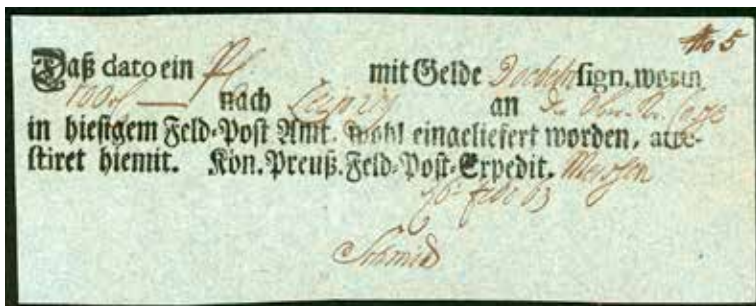 No 5
Daß dato ein Pf mit Gelde sign. worin
100 rf — nach Leipzig an
in hiesigem Feld-Post Amt. wohl eingeliefert worden, atte-
stiret hiemit. Kön. Preuß. Feld-Post-Expedit. Meissen
16 febr 63
Schmid